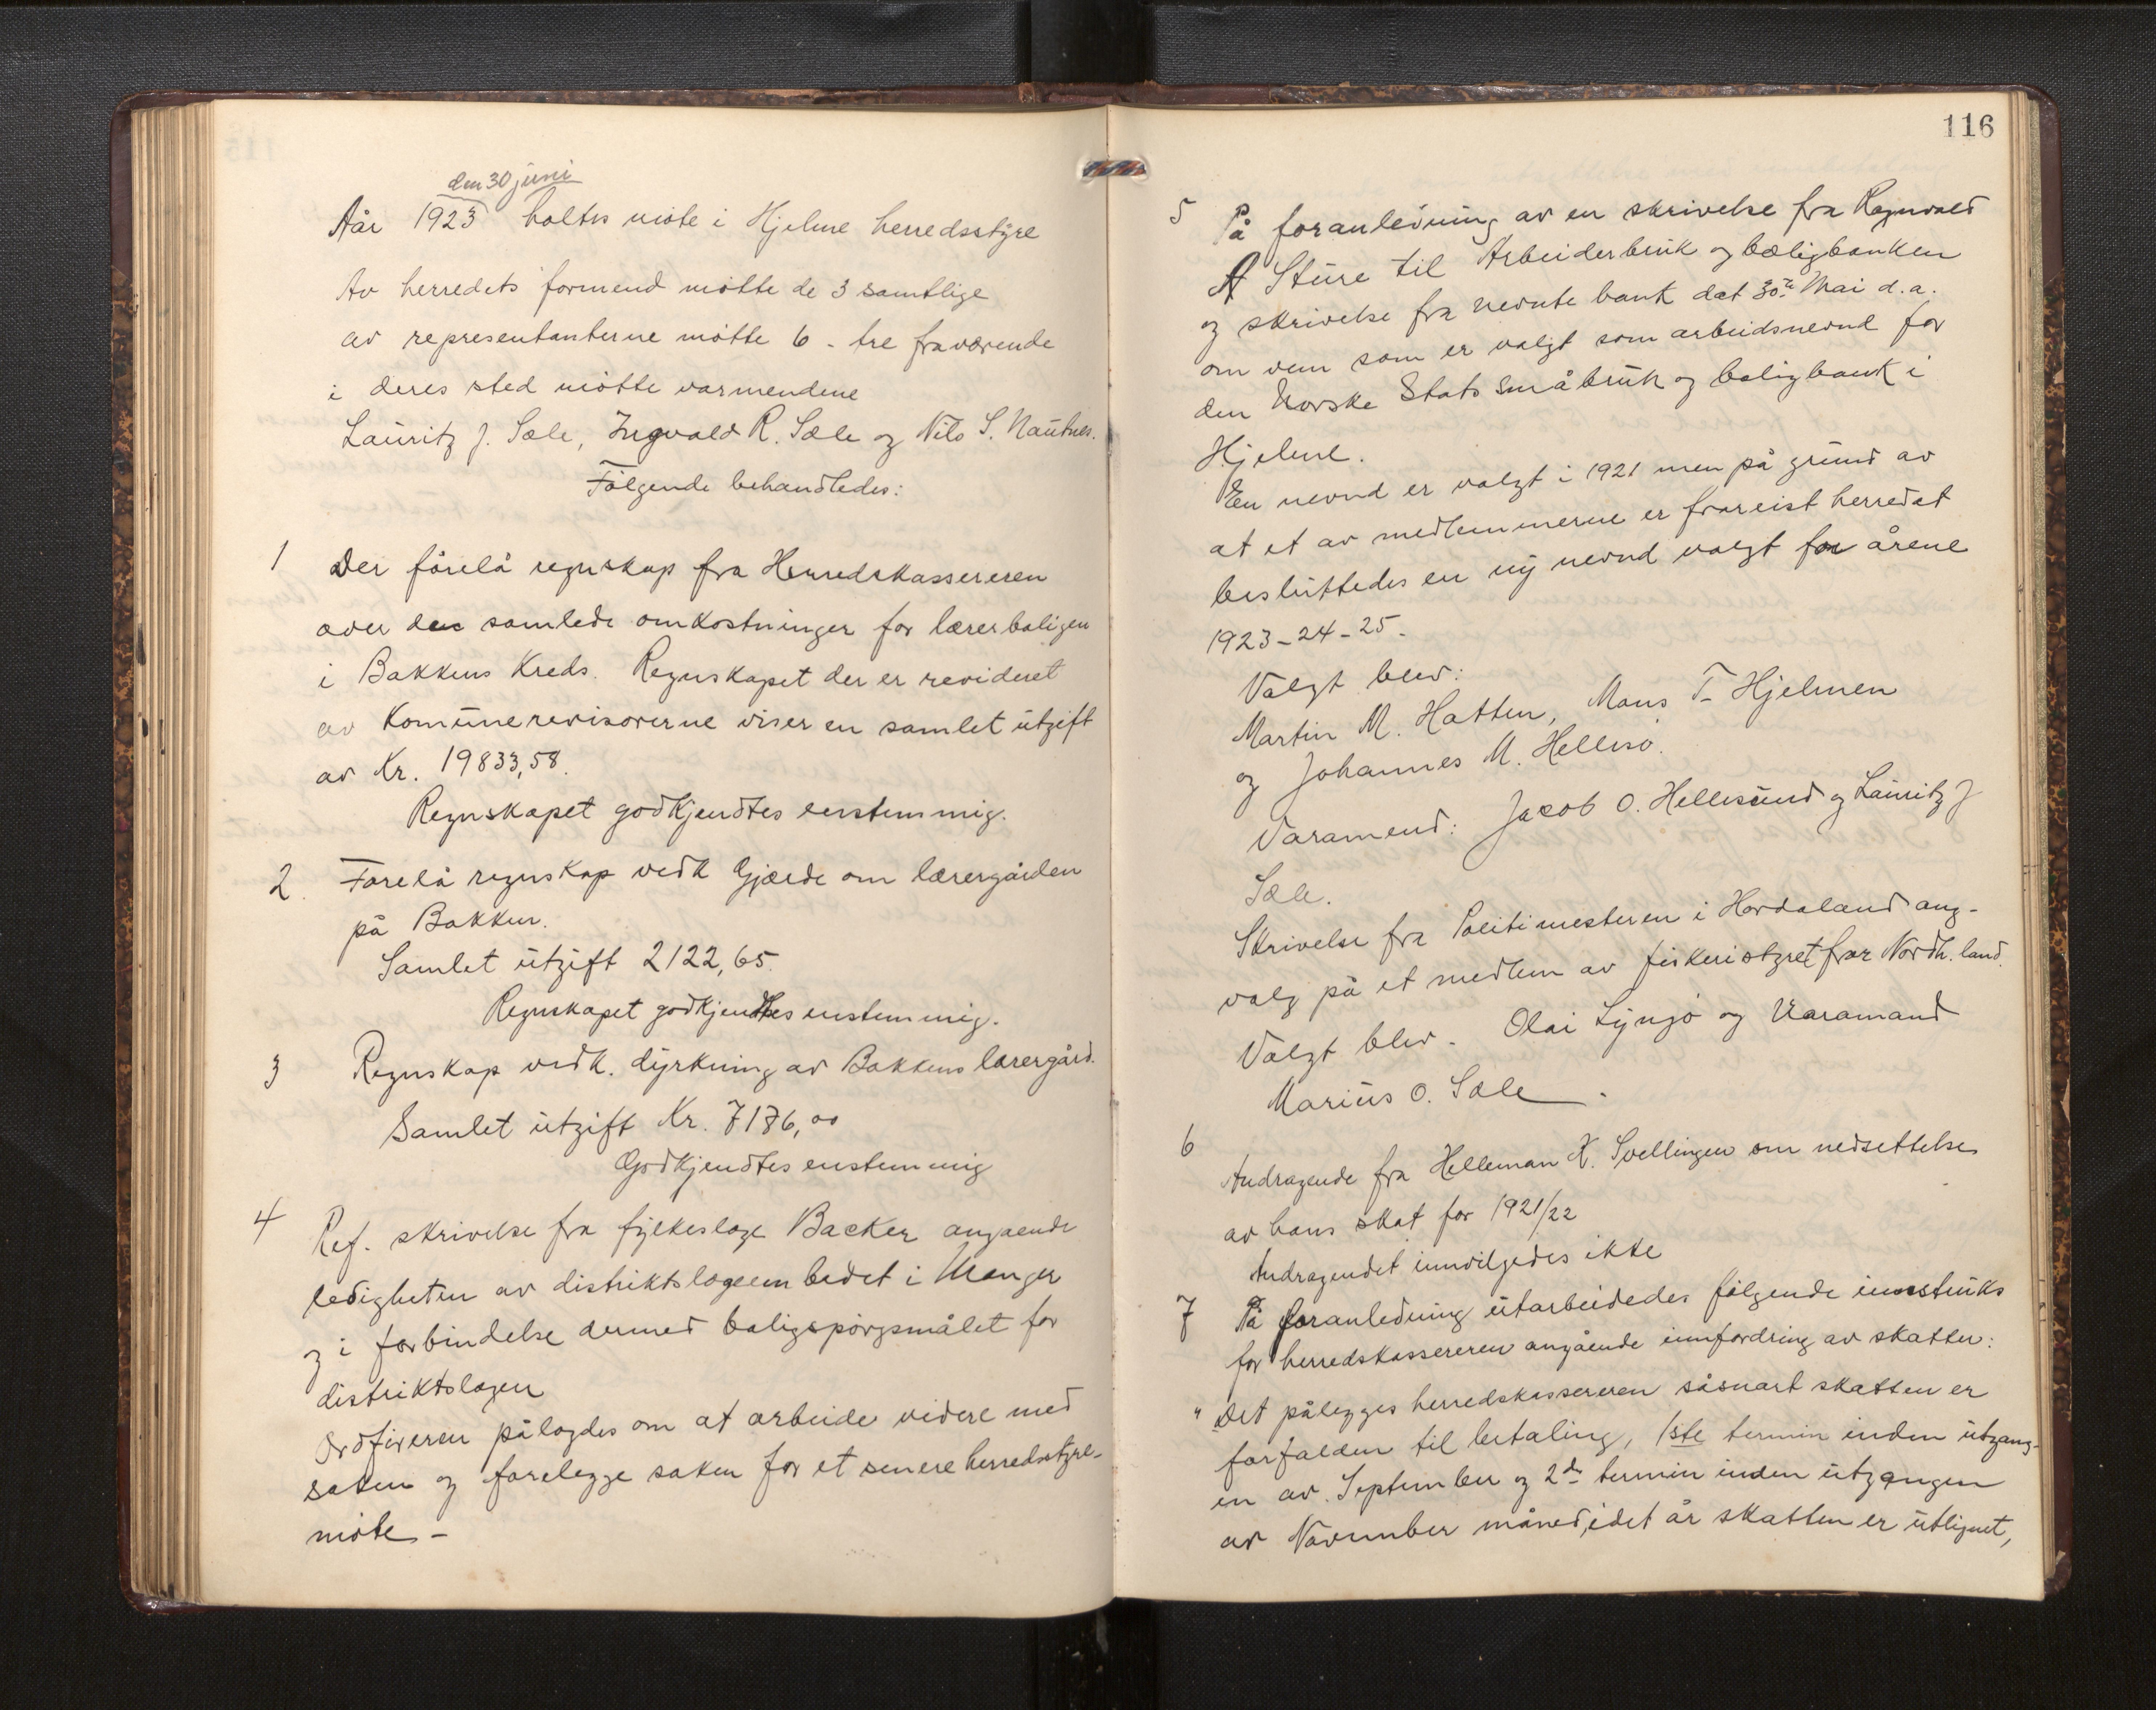 den 30 juni
Aår 1923 holtes møte i Hjelme herredsstyre
Av herredets formend møtte de 3 samtlige
av representanterne møtte 6 - tre fraværende
i deres sted møtte varmendene
Lauritz J. Sæle, Ingvald R. Sæle og Nils S. Nautnes.
Følgende behandledes:
1 Der förelå regnskap fra Herredskassereren
over den samlede omkostninger for lærerboligen
i Bakkens Kreds. Regnskapet der er revideret
av Komunerevisorerne viser en samlet utgift
av Kr. 19833,58.
Regnskapet godkjendtes enstemmig.
2. Forelå regnskap vedk Gjærde om lærergården
på Bakken.
Samlet utgift 2122,65.
Regnskapet godkjendtes enstemmig.
3 Regnskap vedk. dyrkning av Bakkens lærergård.
Samlet utgift Kr. 7186,00
Godkjendtes enstemmig
4 Ref. skrivelse fra fylkeslæge Backer angaende
ledigheten av distriktslægeembedet i Manger
og i forbindelse dermed boligspørgsmålet for
distriktslægen
Ordføreren pålagdes om at arbeide videre med
saken og forelegge saken for et senere herredsstyre-
møte -
116
5 På foranledning av en skrivelse fra Ragnvald
A Sture til Arbeiderbruk og bøligbanken
og skrivelse fra nevnte bank dat 30te Mai d.a.
om vem som er valgt som arbeidsnevnd for
den Norske Stats småbruk og boligbank i
Hjelme.
En nevnd er valgt i 1921 men på grund av
at et av medlemmerne er frareist herredet
besluttedes en ny nevnd valgt for årene
1923-24-25.
Valgt blev:
Martin M. Hatten, Mons T. Hjelmen
og Johannes M. Hellisø.
Varamend: Jacob O. Hellesund og Lauritz J
Sæle.
Skrivelse fra Politimesteren i Hordaland ang-
valg på et medlem av fiskeristyret for Nordh.land.
Valgt blev. Olai Lyngø og Varamand
Marius O. Sæle.
6
Andragende fra Helleman K. Svellingen om nedsettelse
av hans skat for 1921/22
Andragendet innvilgedes ikke
7 På foranledning utarbeidedes følgende innstruks
for herredskassereren angående innfordring av skatten:
" Det pålegges herredskassereren såsnart skatten er
forfalden til betaling, 1ste termin inden utgang-
en av September og 2de termin inden utgangen
av November måned, idet år skatten er utlignet,